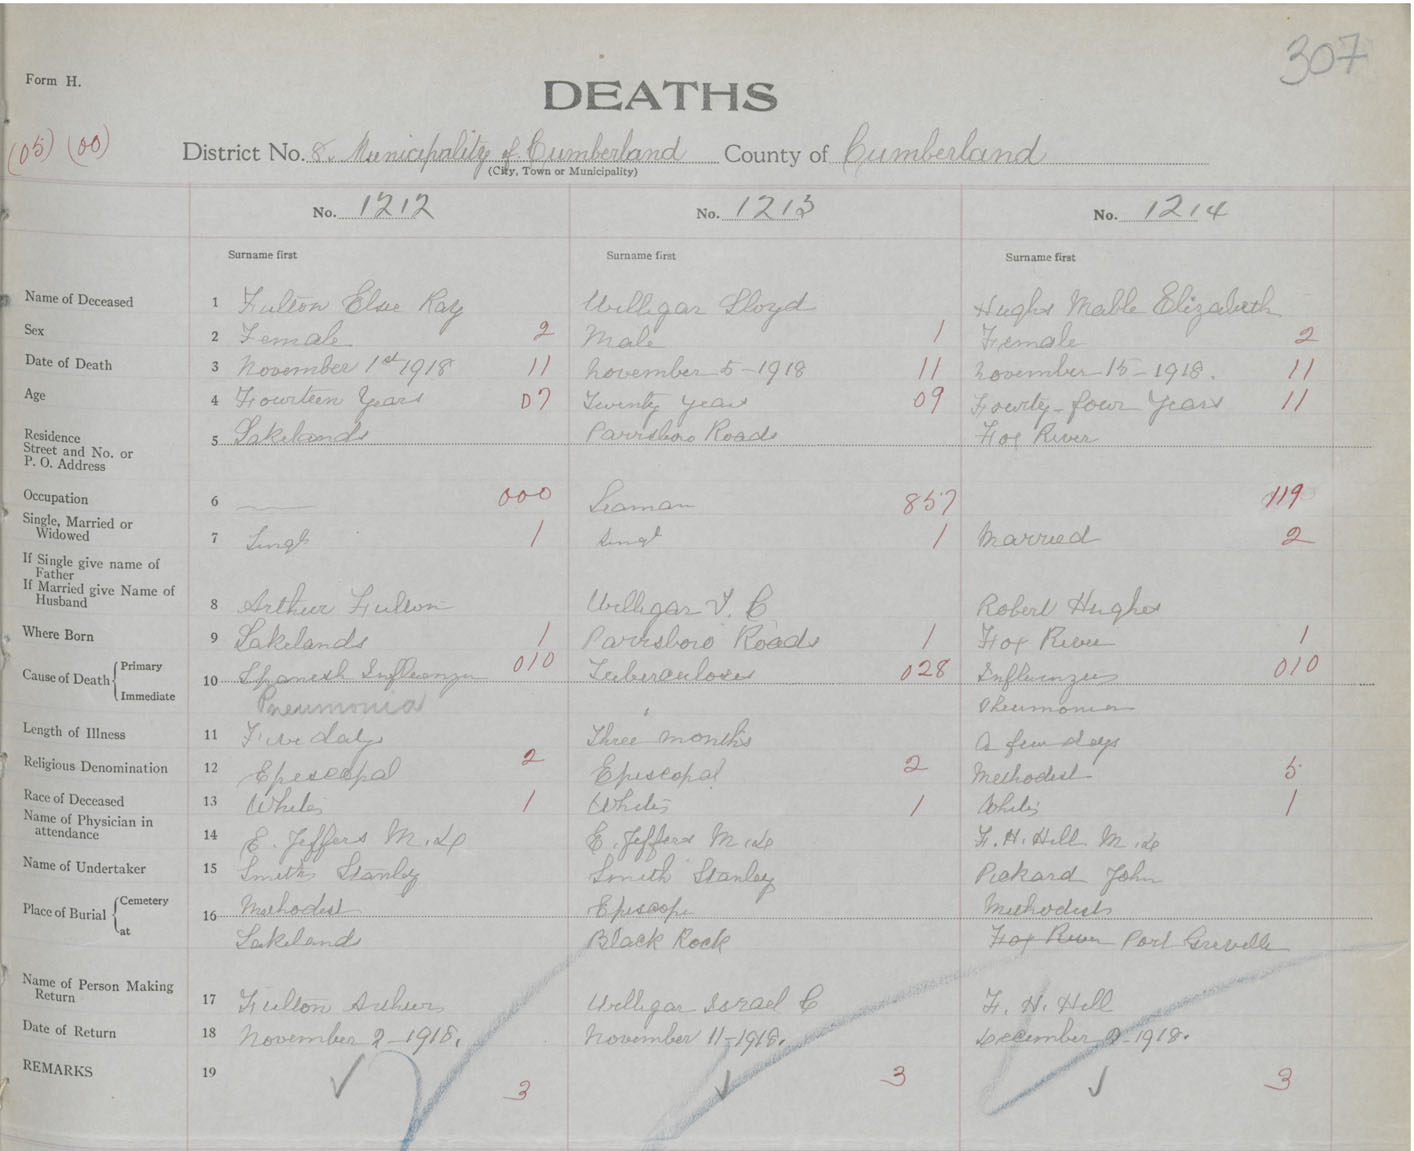 307
Form H.
DEATHS
(05) (00)
District No. 8. Municipality of Cumberland County of Cumberland
(City, Town or Municipality)
No. 1212 No. 1213 No. 1214
Surname first Surname first Surname first
Name of Deceased 1 Fulton Elsie Ray Willigar Lloyd Hughs Mable Elizabeth
Sex 2 Female 2 Male 1 Female 2
Date of Death 3 November 1st 1918 11 November 5-1918 11 November 15-1918. 11
Age 4 Fourteen Years 07 Twenty years 09 Fourty-four Years 11
Residence
Street and No. or
P. O. Address
5 Lakelands Parrsboro Roads Fox River
Occupation 6 000 Seaman 857 119
Single, Married or
Widowed
7 Singl 1 Singl 1 Married 2
If Single give name of
Father
If Married give Name of
Husband
8 Arthur Fulton Willigar I. C Robert Hughes
Where Born 9 Lakelands 1 Parrsboro Roads 1 Fox River 1
Cause of Death { Primary
Immediate
10 Spanish Influenza 010 Tuberculoses 028 Influenza 010
Pneumonia Pneumonia
Length of Illness 11 Five days Three months A few days
Religious Denomination 12 Episcopal 2 Episcopal 2 Methodist 5
Race of Deceased 13 White 1 White 1 White 1
Name of Physician in
attendance
14 E. Jeffers M.D E. Jeffers M.D F. H. Hill M.D
Name of Undertaker 15 Smith Stanley Smith Stanley Pickard John
Place of Burial { Cemetery
at
16 Methodist Episcop Methodist
Lakeland Black Rock Fox River Port Greville
Name of Person Making
Return
17 Fulton Arthur Willigar Israel C F. H. Hill
Date of Return 18 November 2-1918. November 11-1918. December -1918.
REMARKS 19 3 3 3